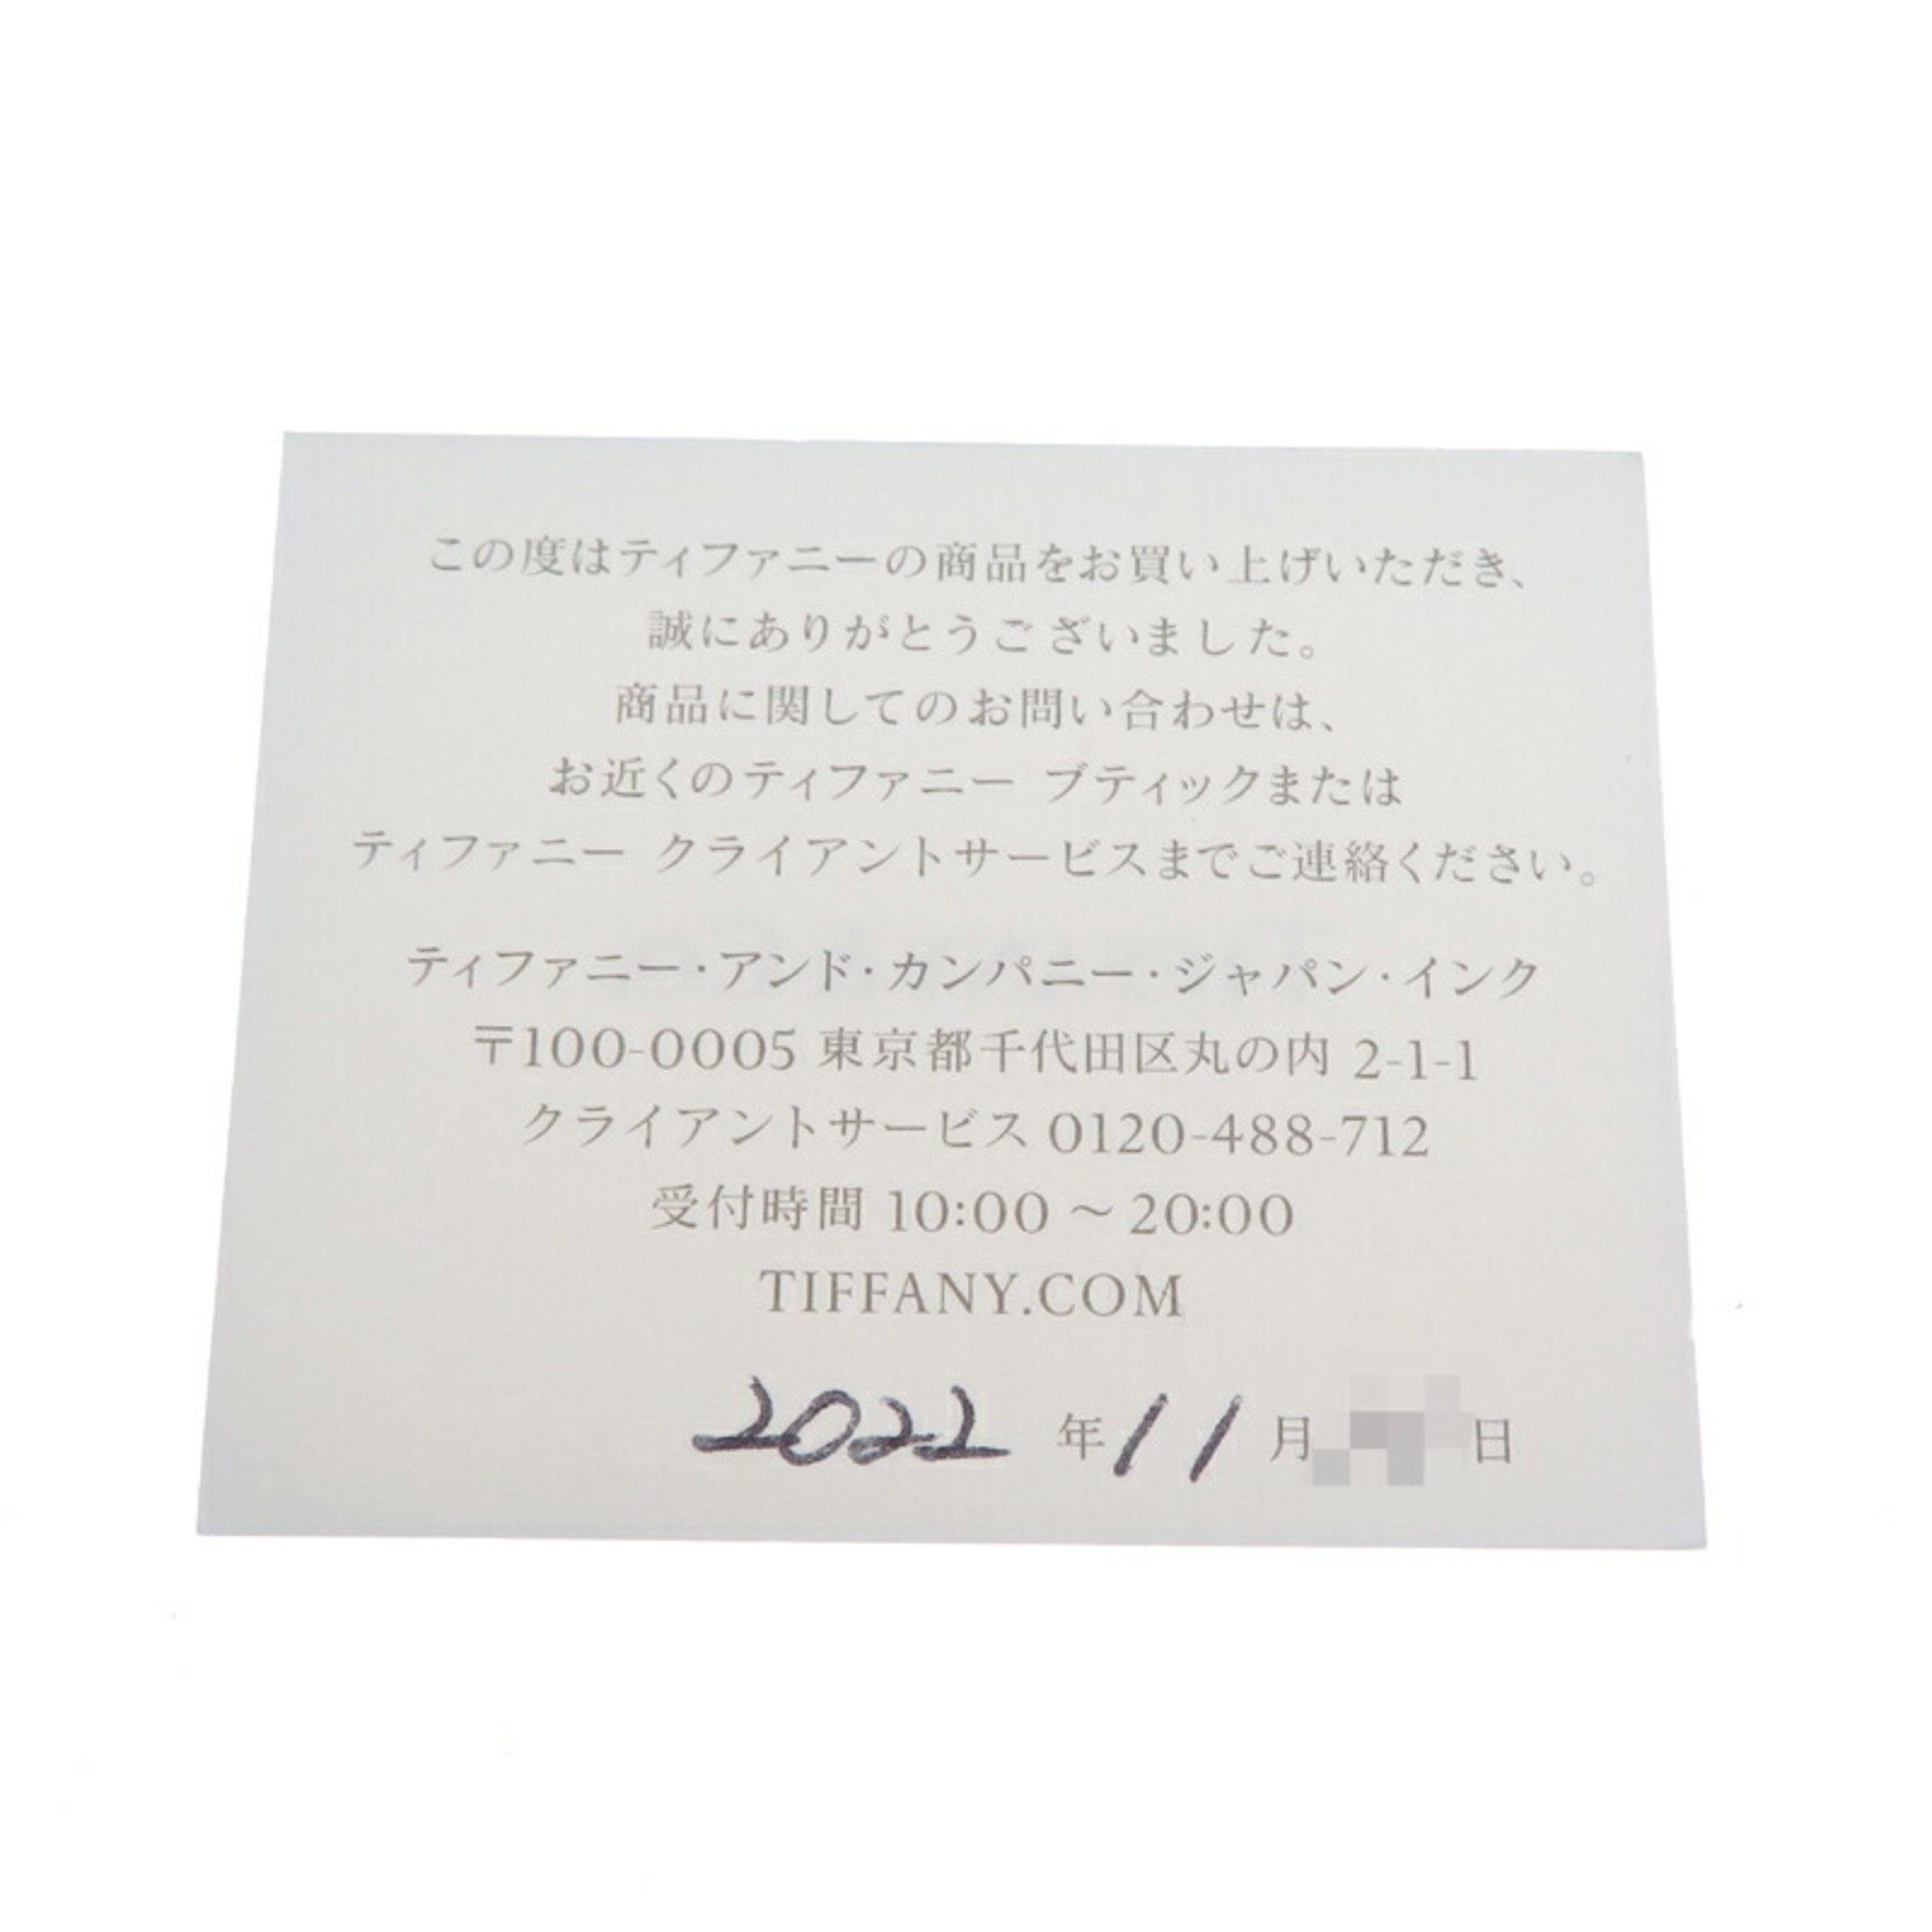 この度はティファニーの商品をお買い上げいただき、
誠にありがとうございました。
商品に関してのお問い合わせは、
お近くのティファニー ブティックまたは
ティファニー クライアントサービスまでご連絡ください。
ティファニー・アンド・カンパニー・ジャパン・インク
〒100-0005 東京都千代田区丸の内 2-1-1
クライアントサービス 0120-488-712
受付時間 10:00 〜 20:00
TIFFANY.COM
2022 年 11 月 日